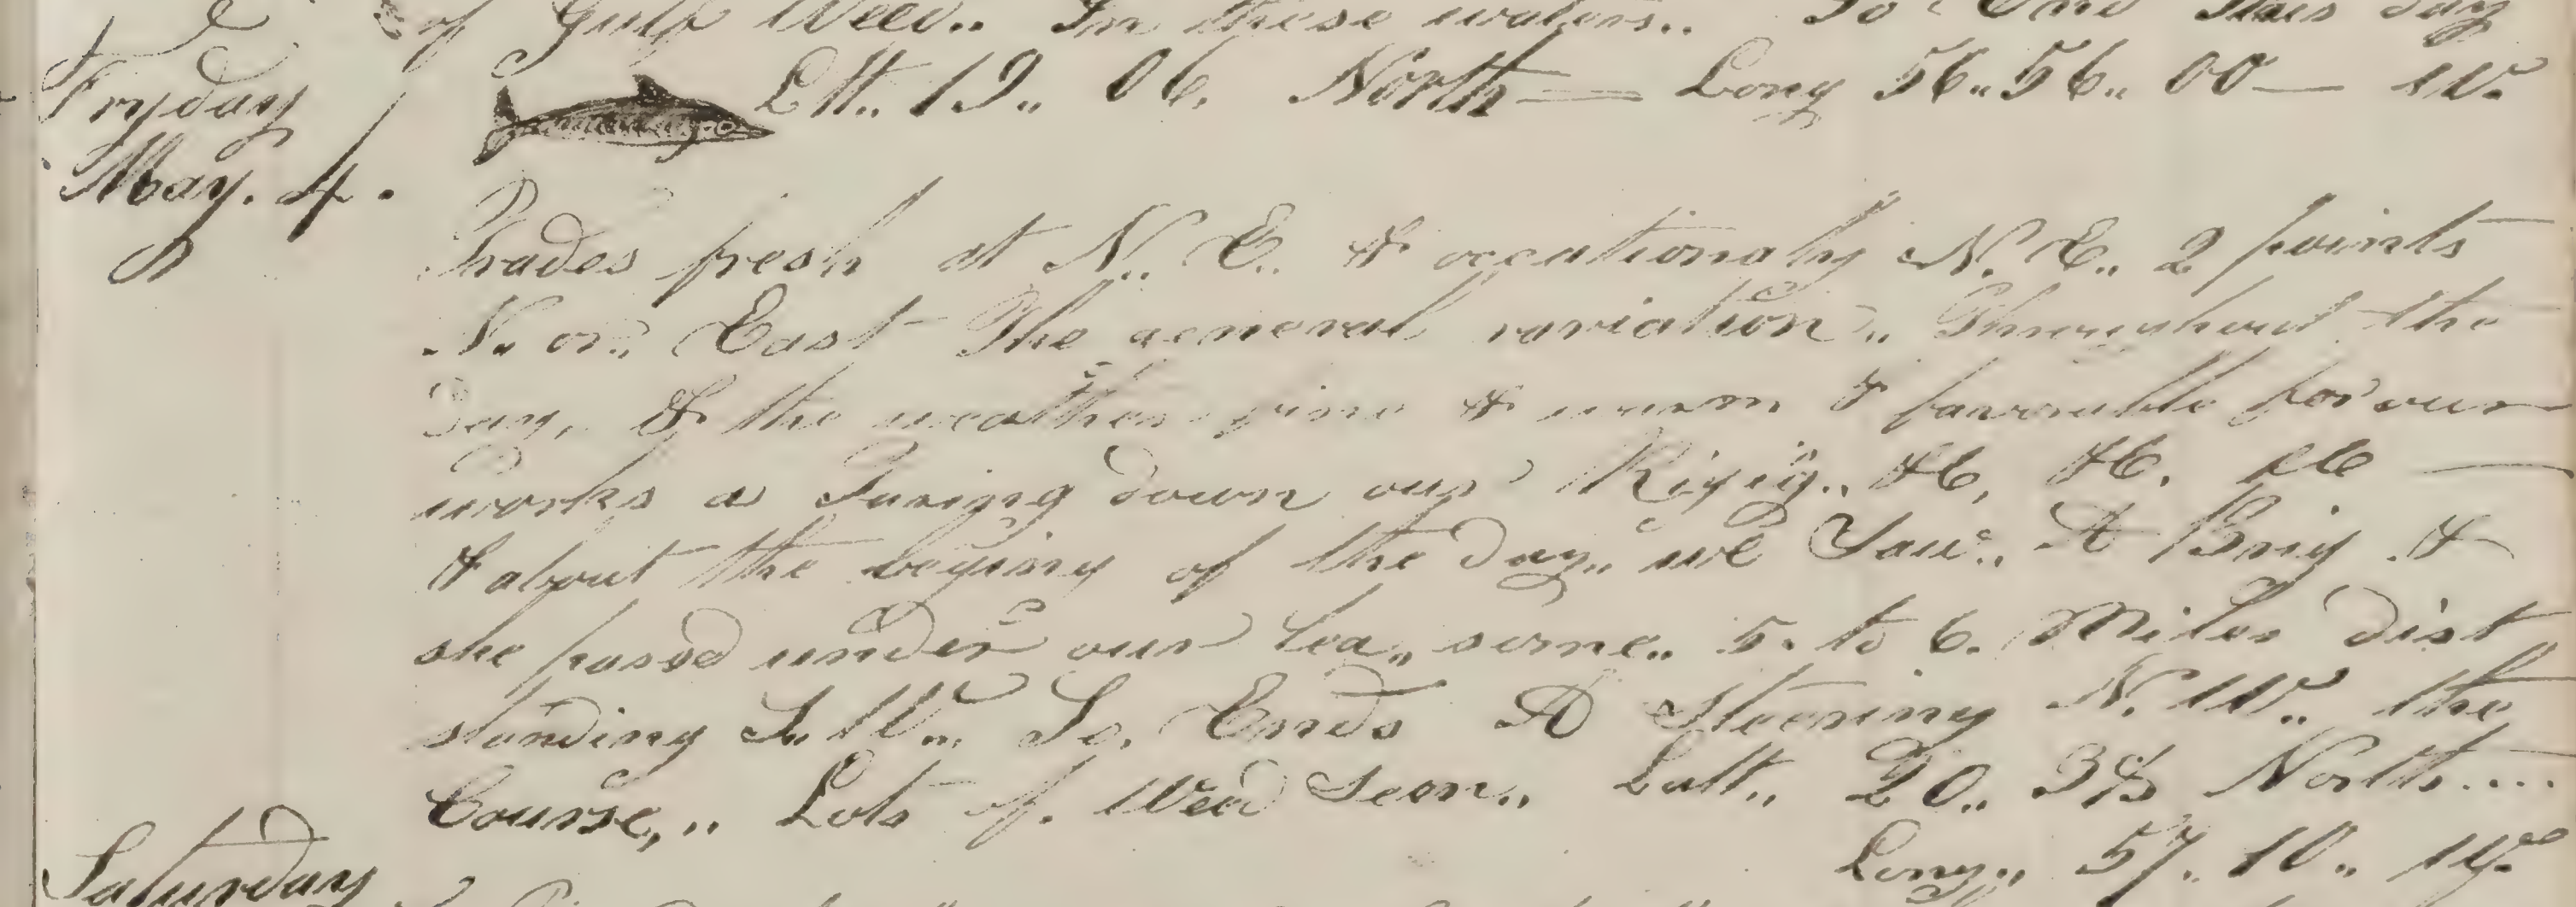 of Gulf Weed.. In these waters.. So End this day
Fryday
Latt.. 19.. 06. North — Long 56.. 56.. 00 — W.
May. 4.
Trades fresh at N.. E.. & occationaly N. E.. 2 points
N. or.. East The general variation.. Throughout the
Day, & the weather fine & warm & favourble for our
works as Taring down our Rigig.. &C, &C. &C —
& about the begining of the Day.. we Saw.. A Brig &
she passd under our lea.. some.. 5. to 6. Miles dist
standing S.. W... So. Ends A Steering N. W.. the
Course,.. Lots of. Weed Seen.. Latt.. 20.. 38 North....
Long.. 57.. 10.. W.
Saturday